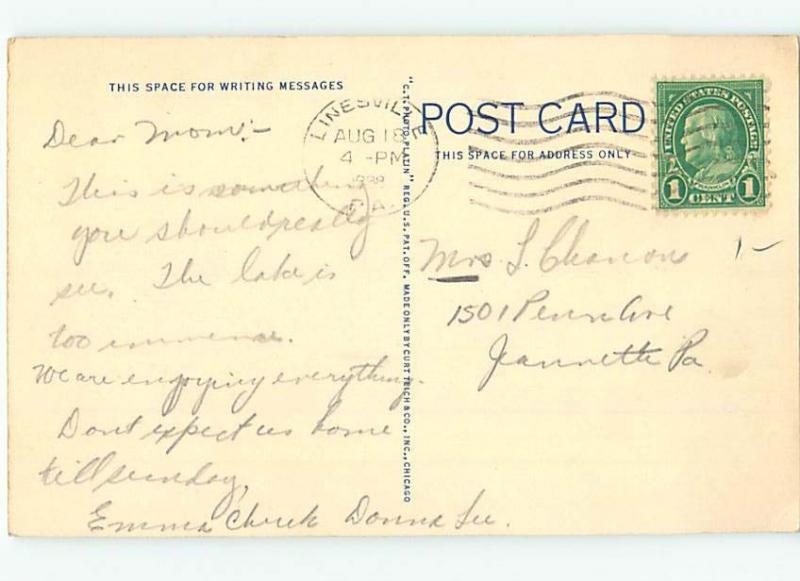 THIS SPACE FOR WRITING MESSAGES
Dear Mom:-
This is something
you should really
see. The lake is
too immense.
We are enjoying everything.
Dont expect us home
till sunday,
Emma Chuck Donna Lee.
"C.T. PHOTO-PLATIN" REG. U.S. PAT. OFF. MADE ONLY BY CURT TEICH & CO., INC., CHICAGO
LINESVILLE
AUG 18
4 -PM
PA.
POST CARD
THIS SPACE FOR ADDRESS ONLY
UNITED STATES POSTAGE
FRANKLIN
1 CENT 1
Mrs
1501 Penn Ave
Jeannette Pa.